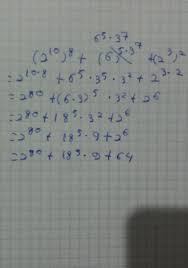 6⁵·3⁷
(2¹⁰)⁸ + (6)⁵·3⁷ + (2³)²
=2¹⁰·⁸ + 6⁵·3⁵·3² + 2³·²
=2⁸⁰ + (6·3)⁵·3² + 2⁶
=2⁸⁰ + 18⁵·3² + 2⁶
=2⁸⁰ + 18⁵·9 + 2⁶
=2⁸⁰ + 18⁵·9 + 64